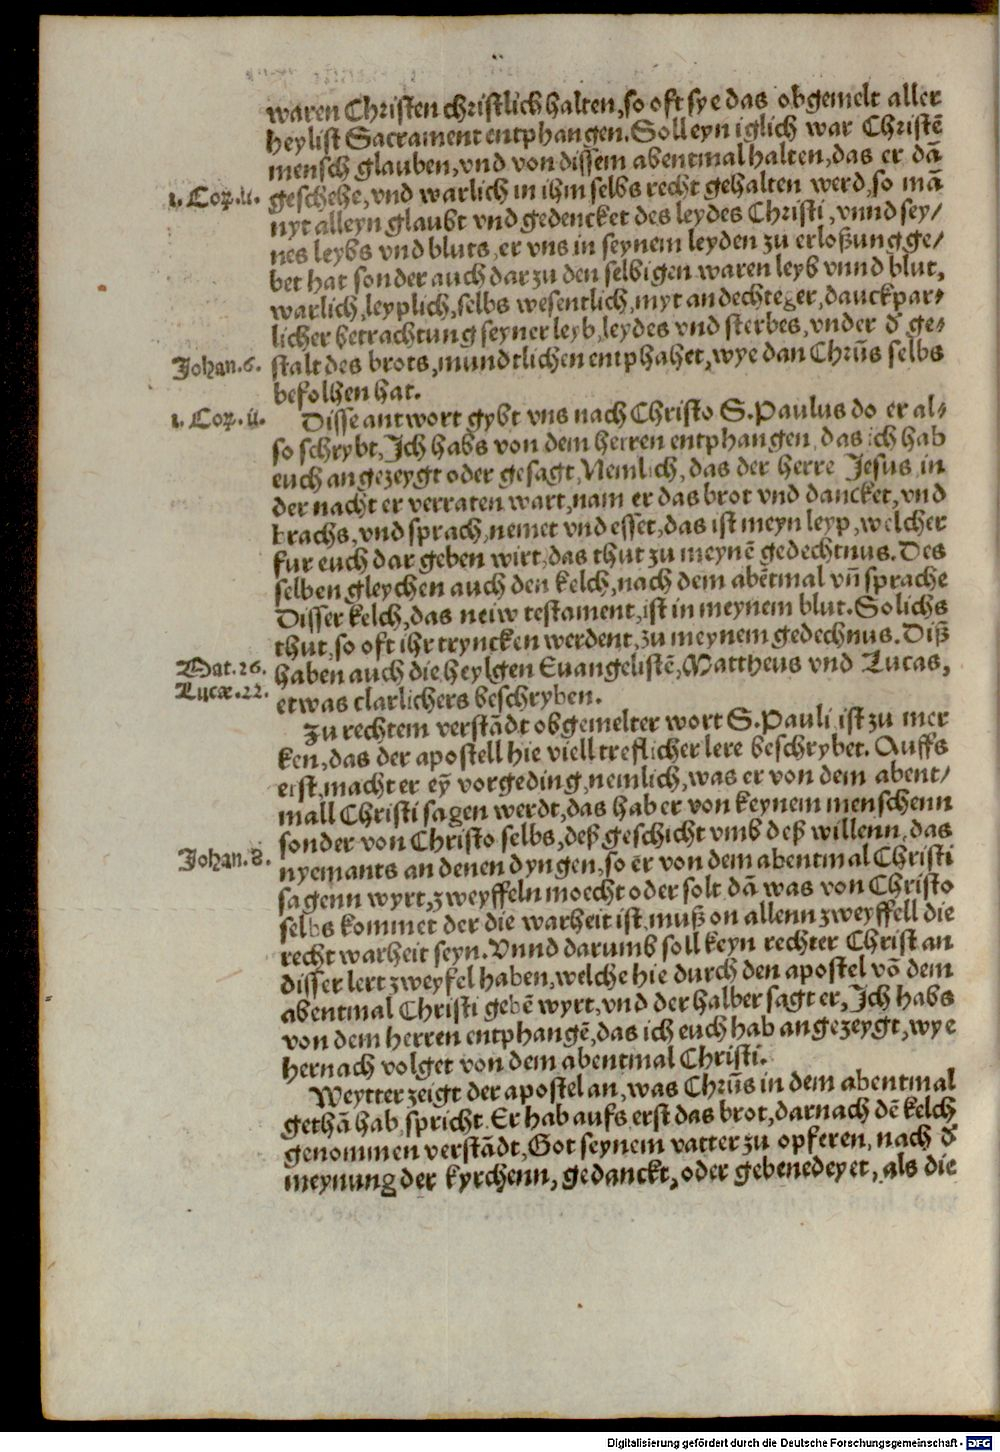 waren Christen christlich halten, so oft sye das obgemelt aller
heylist Sacrament entphangen. Soll eyn iglich war Christē
mensch glauben, vnd von dissem abentmal halten, das er dā
1. Cor. 11. geschehe, vnd warlich in ihm selbs recht gehalten werd, so mā
nyt alleyn glaubt vnd gedencket des leydes Christi, vnnd sey/
nes leybs vnd bluts, er vns in seynem leyden zu erloßung ge/
bet hat sonder auch dar zu den selbigen waren leyb vnnd blut,
warlich, leyplich, selbs wesentlich, myt andechteger, danckpar/
licher betrachtung seyner leyb, leydes vnd sterbes, vnder d̕ ge/
Johan. 6. stalt des brots, mundtlichen entphahet, wye dan Chrūs selbs
befolhen hat.
1. Cor. 11. Disse antwort gybt vns nach Christo S. Paulus do er al/
so schrybt, Ich habs von dem herren entphangen, das ich hab
euch angezeygt oder gesagt, Nemlich, das der herre Jesus in
der nacht er verraten wart, nam er das brot vnd dancket, vnd
brachs, vnd sprach, nemet vnd esset, das ist meyn leyp, welcher
fur euch dar geben wirt, das thut zu meynē gedechtnus. Des
selben gleychen auch den kelch, nach dem abētmal vn̄ sprache
Disser kelch, das neiw testament, ist in meynem blut. Solichs
thut, so oft ihr tryncken werdent, zu meynem gedechnus. Diß
Mat. 26. haben auch die heylgen Euangelistē, Mattheus vnd Lucas,
Lucæ. 22. etwas clarlichers beschryben.
Zu rechtem verstādt obgemelter wort S. Pauli ist zu mer
ken, das der apostell hie viell treflicher lere beschrybet. Auffs
erst, macht er eȳ vorgeding, nemlich, was er von dem abent/
mall Christi sagen werdt, das hab er von keynem menschenn
sonder von Christo selbs, deß geschicht vmb deß willenn, das
Johan. 8. nyemants an denen dyngen, so er von dem abentmal Christi
sagenn wyrt, zweyffeln moecht oder solt dā was von Christo
selbs kommet der die warheit ist, muß on allenn zweyffell die
recht warheit seyn. Vnnd darumb soll keyn rechter Christ an
disser lert zweyfel haben, welche hie durch den apostel vō dem
abentmal Christi gebē wyrt, vnd der halber sagt er, Ich habs
von dem herren entphangē, das ich euch hab angezeygt, wye
hernach volget von dem abentmal Christi.
Weytter zeigt der apostel an, was Chrūs in dem abentmal
gethā hab, spricht. Er hab aufs erst das brot, darnach dē kelch
genommen verstādt, Got seynem vatter zu opferen, nach d̕
meynung der kyrchenn, gedanckt, oder gebenedeyet, als die
Digitalisierung gefördert durch die Deutsche Forschungsgemeinschaft - DFG